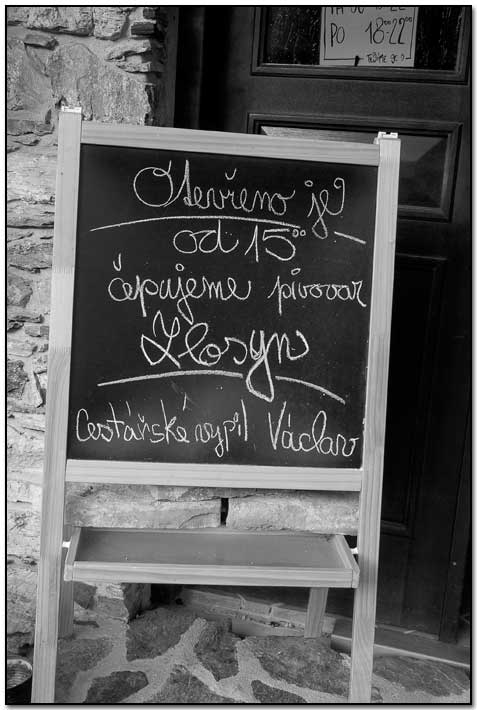 PO 18⁰⁰-22⁰⁰
Otevřeno je
od 15⁰⁰
čepujeme pivovar
Zlosyn
Cestářské vypil Václav